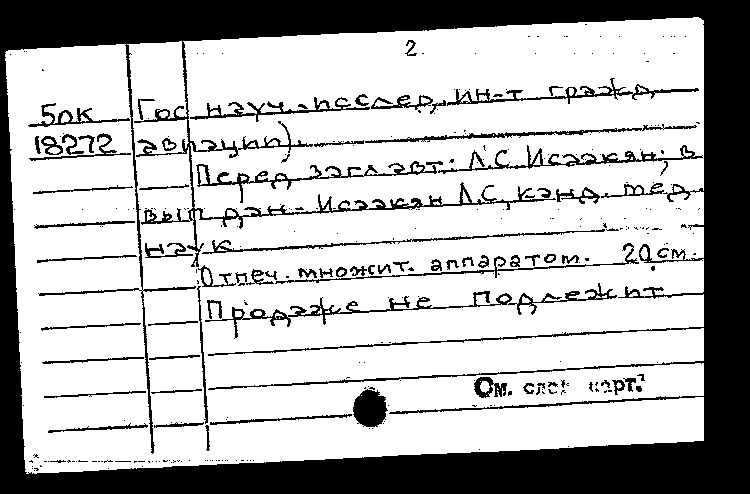 2
Бок Гос науч.-исслед. ин-т гражд.
18272 авиации).
Перед загл авт: Л.С Исаакян; в
вып дан- Исаакян Л.С, канд. мед
наук
Отпеч. множит. аппаратом. 20 см.
Продаже не подлежит
См. след карт.